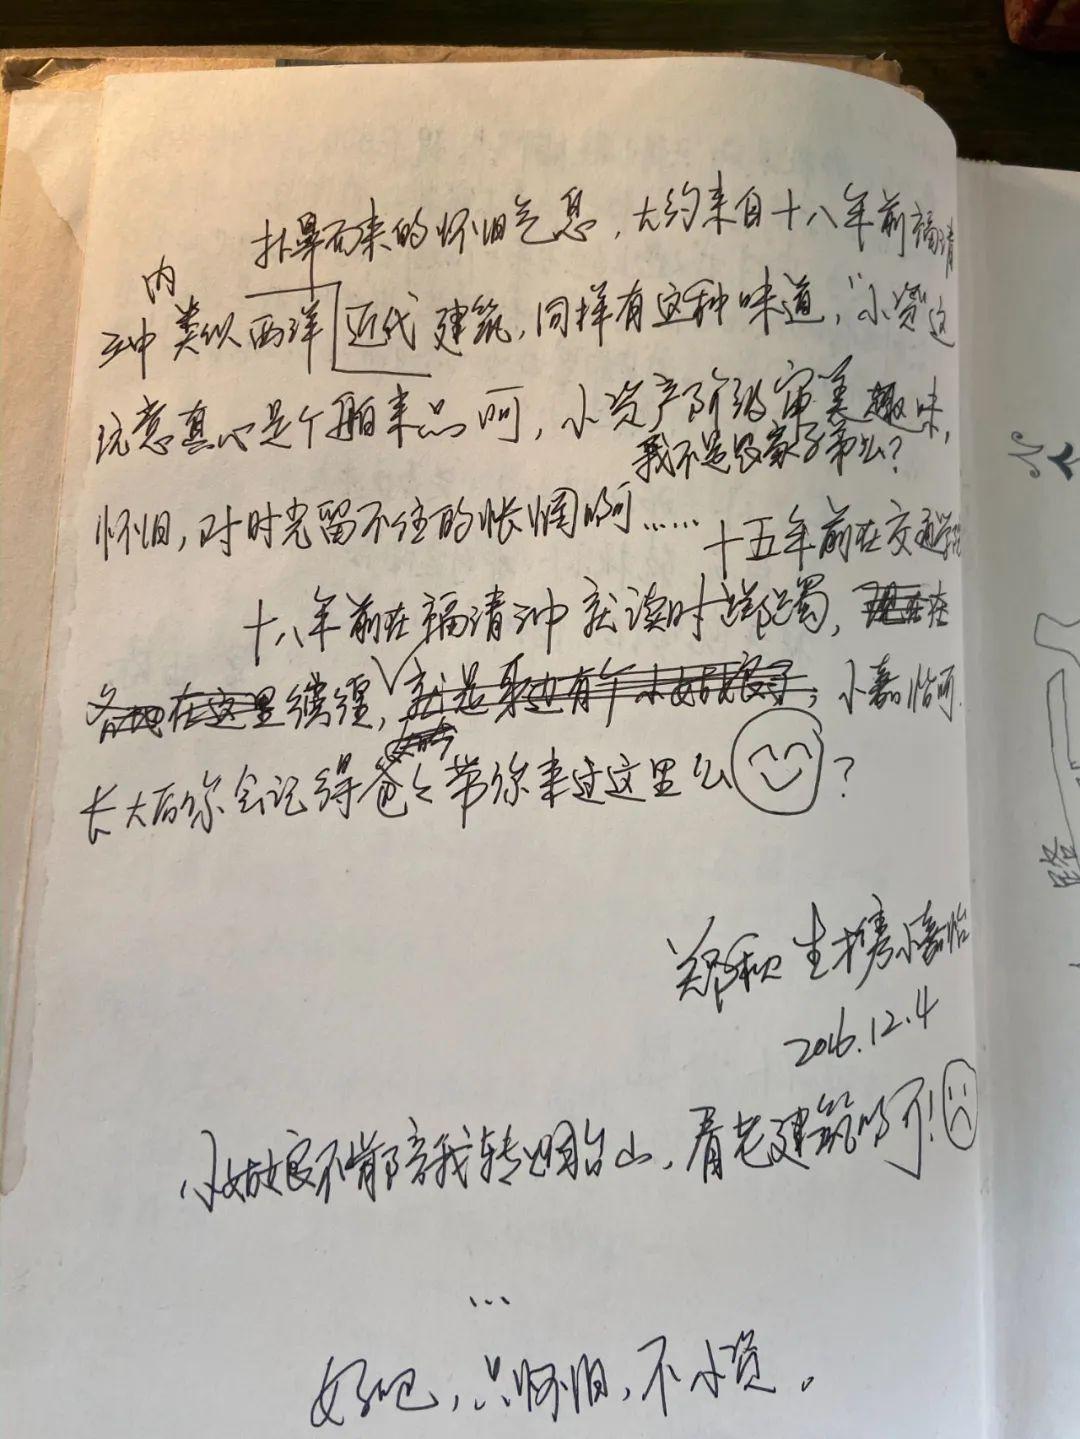 扑鼻而来的怀旧气息，大约来自十八年前福清
内
三中类似西洋近代建筑，同样有这种味道，“小资”这
玩意真心是个舶来品啊，小资产阶级审美趣味，
我不是农家子弟么？
怀旧，对时光留不住的怅惘啊……
十五年前在交通学院
十八年前在福清三中就读时
在这里缱绻，就是身边有个小姑娘了；小嘉怡啊
长大后你会记得爸爸带你来过这里么？
郑秋生携小嘉怡
2016.12.4
小姑娘不肯陪我转烟台山，看老建筑啊！
…
好吧，只怀旧，不小资。